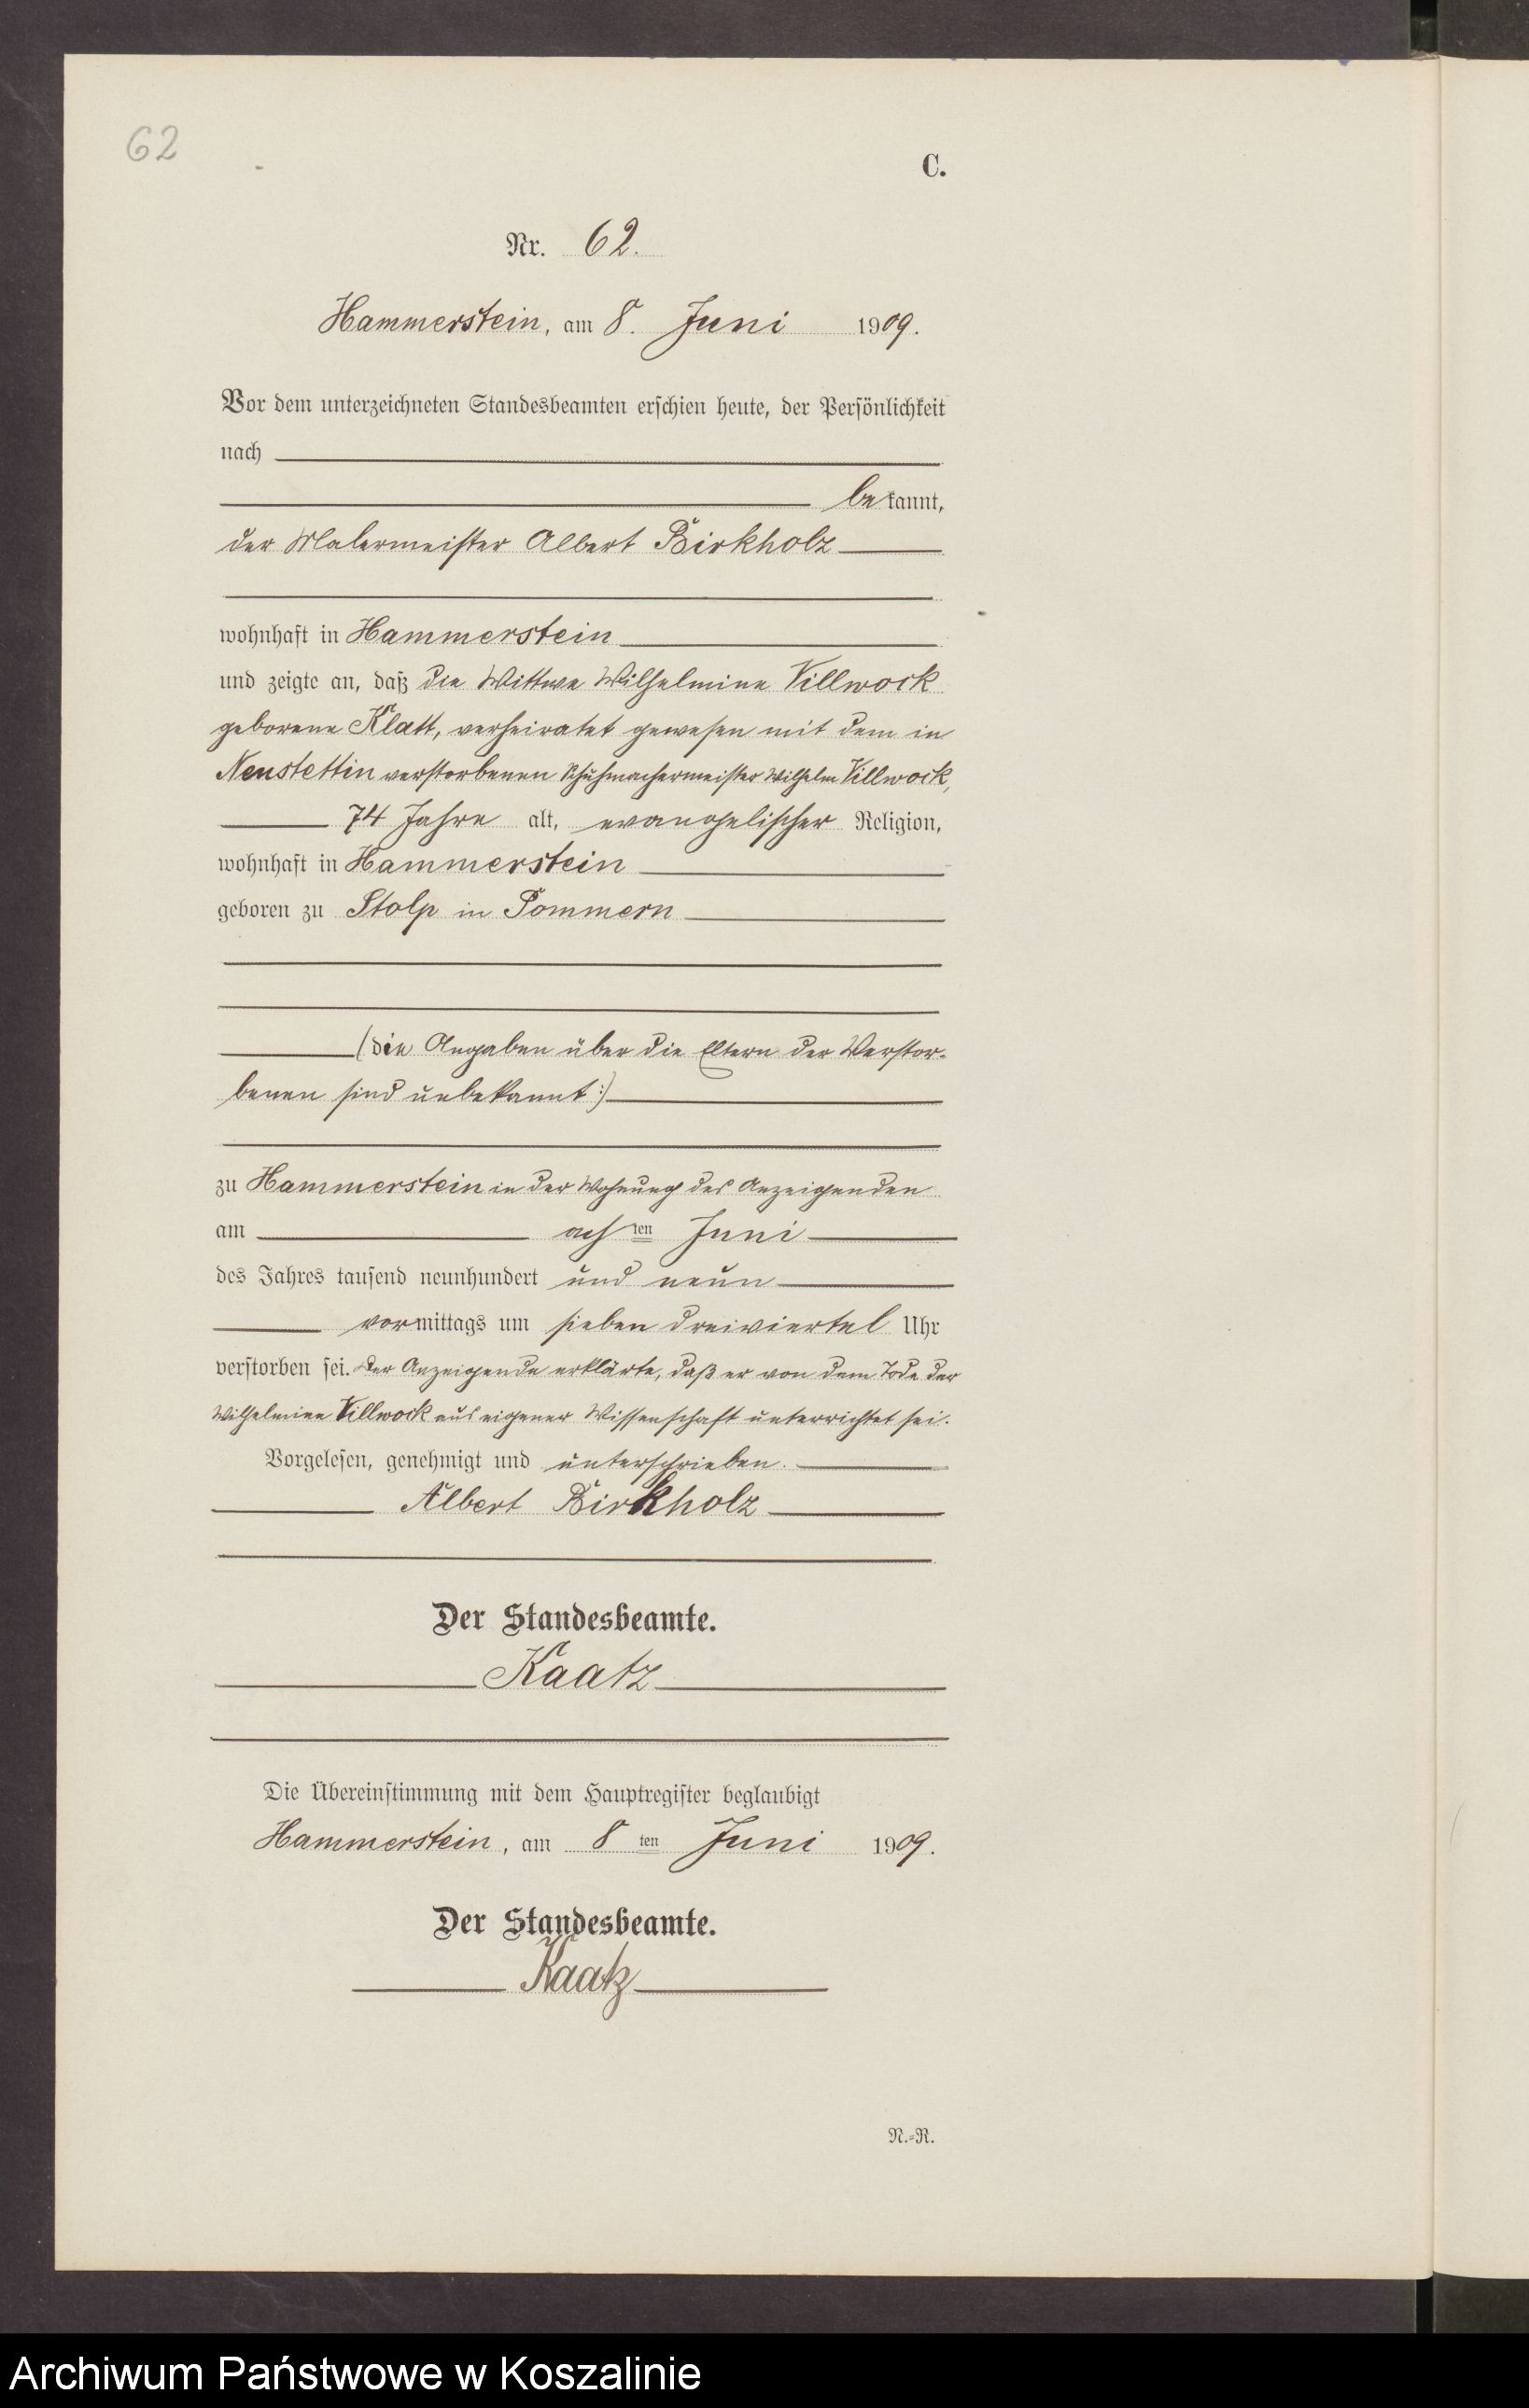 62
C.
Nr. 62.
Hammerstein, am 8. Juni 1909.
Vor dem unterzeichneten Standesbeamten erschien heute, der Persönlichkeit
nach
bekannt,
der Malermeister Albert Birkholz
wohnhaft in Hammerstein
und zeigte an, daß die Wittwe Wilhelmine Villwock
geborene Klatt, verheiratet gewesen mit dem in
Neustettin verstorbenen Schuhmachermeister Wilhelm Villwock,
74 Jahre alt, evangelischer Religion,
wohnhaft in Hammerstein
geboren zu Stolp in Pommern
(die Angaben über die Eltern der Verstor-
benen sind unbekannt:)
zu Hammerstein in der Wohnung des Anzeigenden
am achten Juni
des Jahres tausend neunhundert und neun
vormittags um sieben dreiviertel Uhr
verstorben sei. Der Anzeigende erklärte, daß er von dem Tode der
Wilhelmine Villwock aus eigener Wissenschaft unterrichtet sei.
Vorgelesen, genehmigt und unterschrieben.
Albert Birkholz
Der Standesbeamte.
Kaatz
Die Übereinstimmung mit dem Hauptregister beglaubigt
Hammerstein, am 8ten Juni 1909.
Der Standesbeamte.
Kaatz
N.-R.
Archiwum Państwowe w Koszalinie